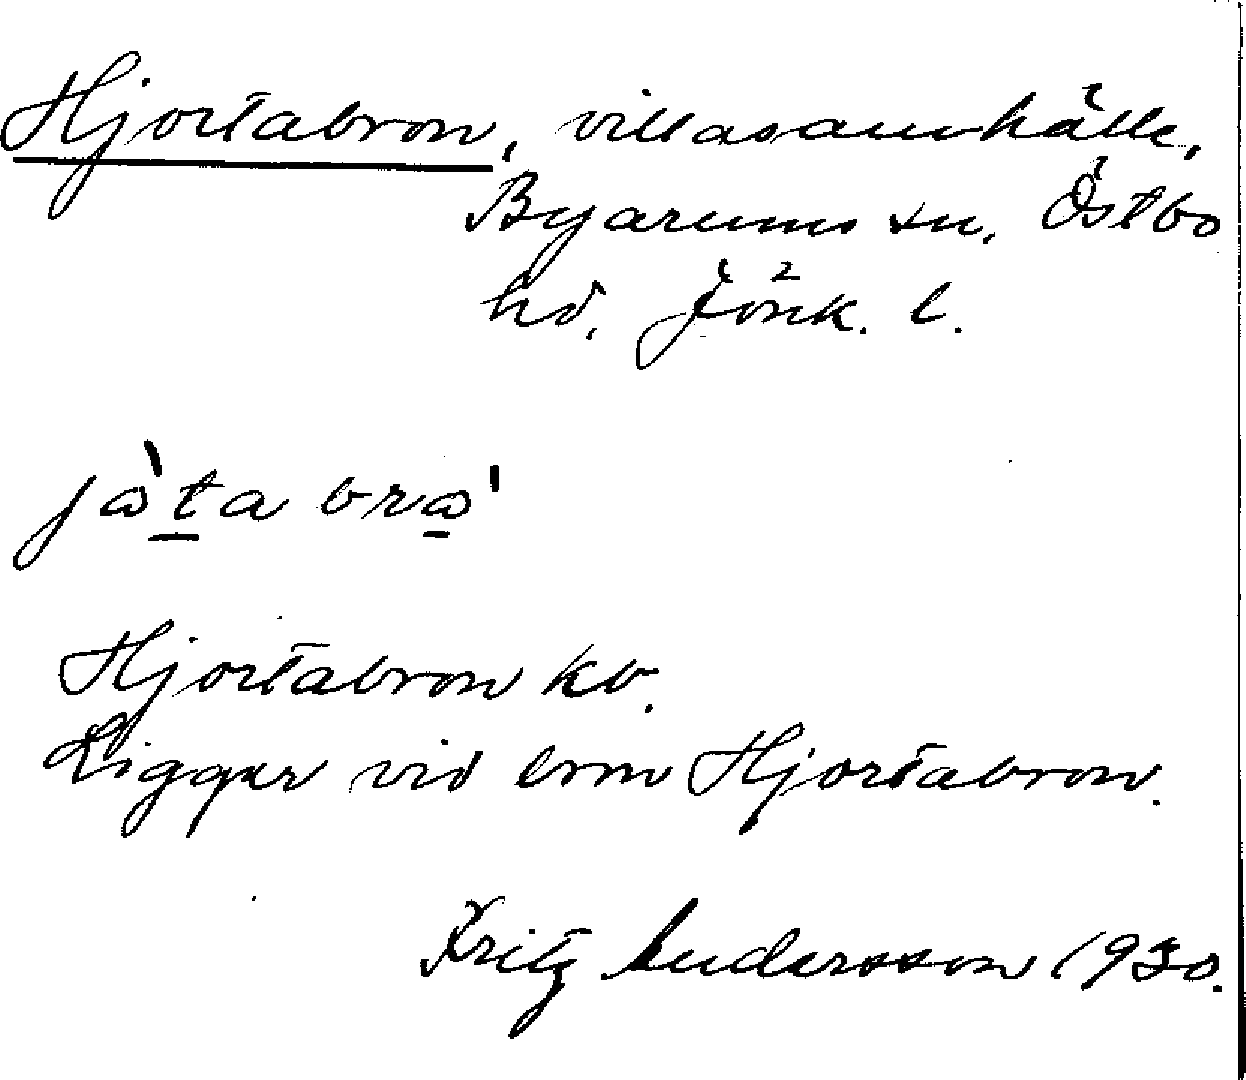 Hjortabron, villasamhälle,
Byarums sn, Östbo
hd, Jönk. l.
jɷ̀ta brɷ'
Hjortabron kv.
Ligger vid bron Hjortabron.
Fritz Andersson 1930.